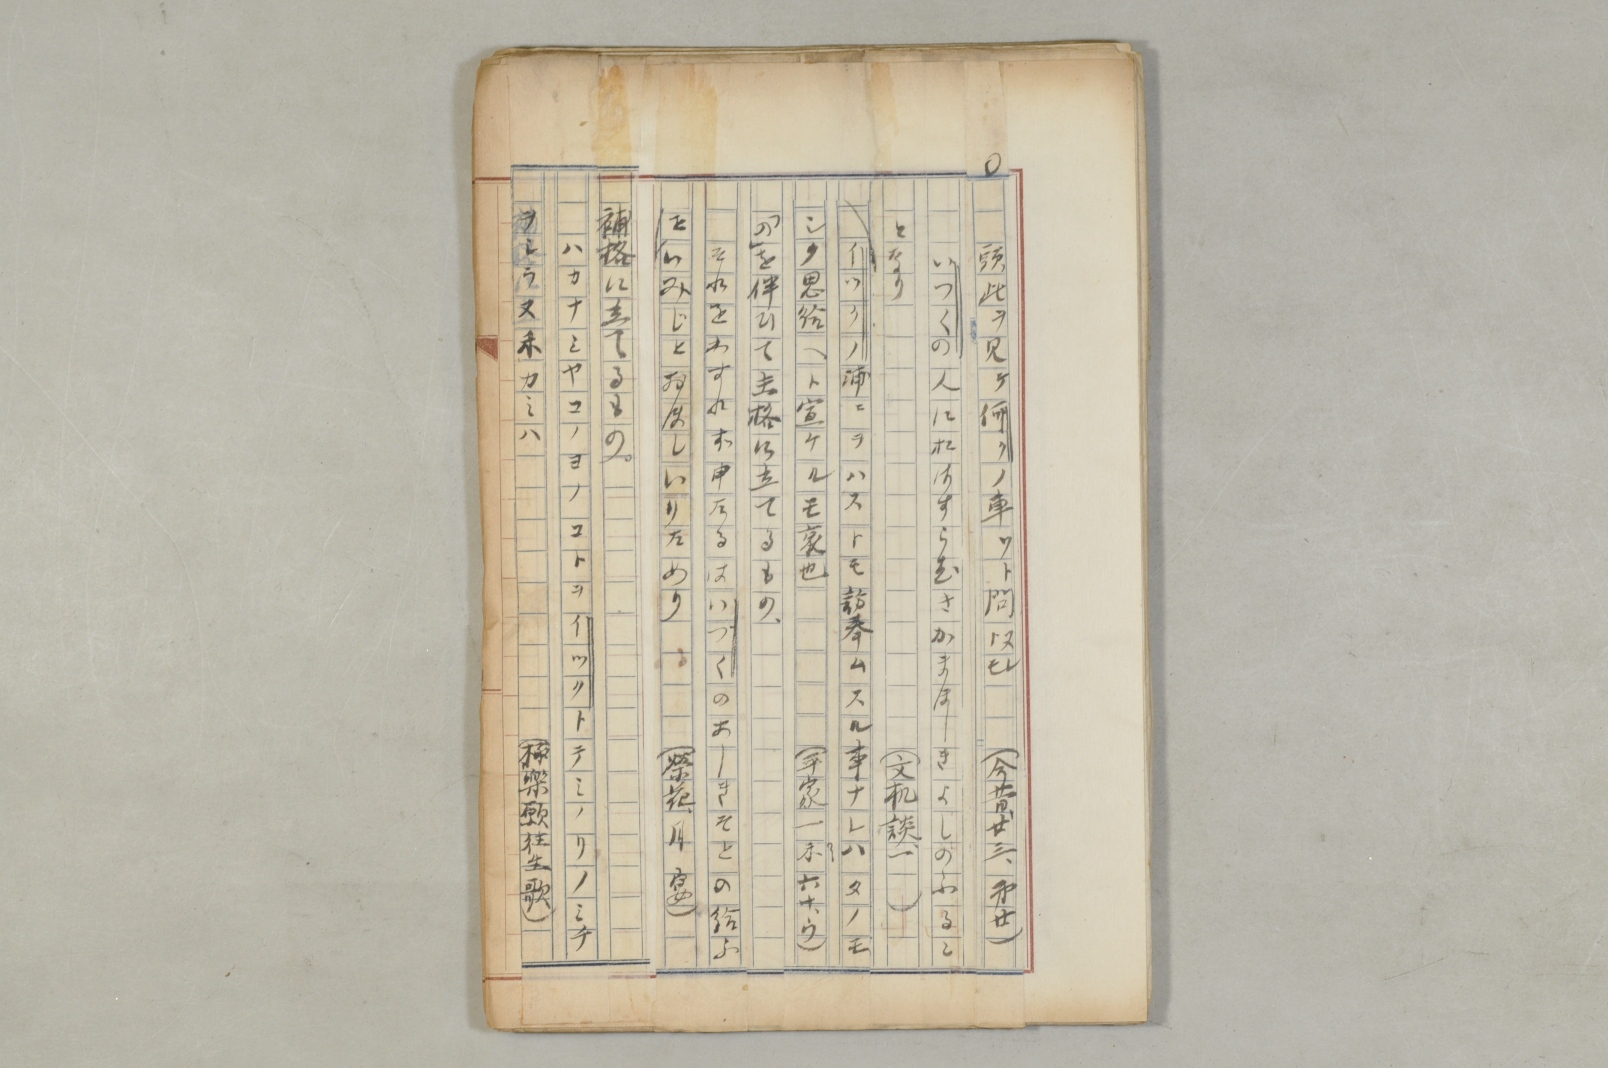 頭此ヲ見ケ何クノ車ソト問ヘトモ (今昔廿三、第廿)
いづくの人におはすらむさかまほしきよしのふるこ
となり (文机談一)
イツクノ浦ニヲハストモ訪奉ムスル事ナレハタノモ
シク思給ヘト宣ケルモ哀也 (平家一末六十、ウ)
「の」を伴ひて主格に立てるもの、
それをわすれず申たるはいづくのあしきそとの給ふ
をいみじとおぼしいりためり (榮花、月宴)
補格に立てるもの。
ハカナミヤコノヨノコトヲイツクトテミノリノミチ
ヲシラヌ (極樂願往生歌)